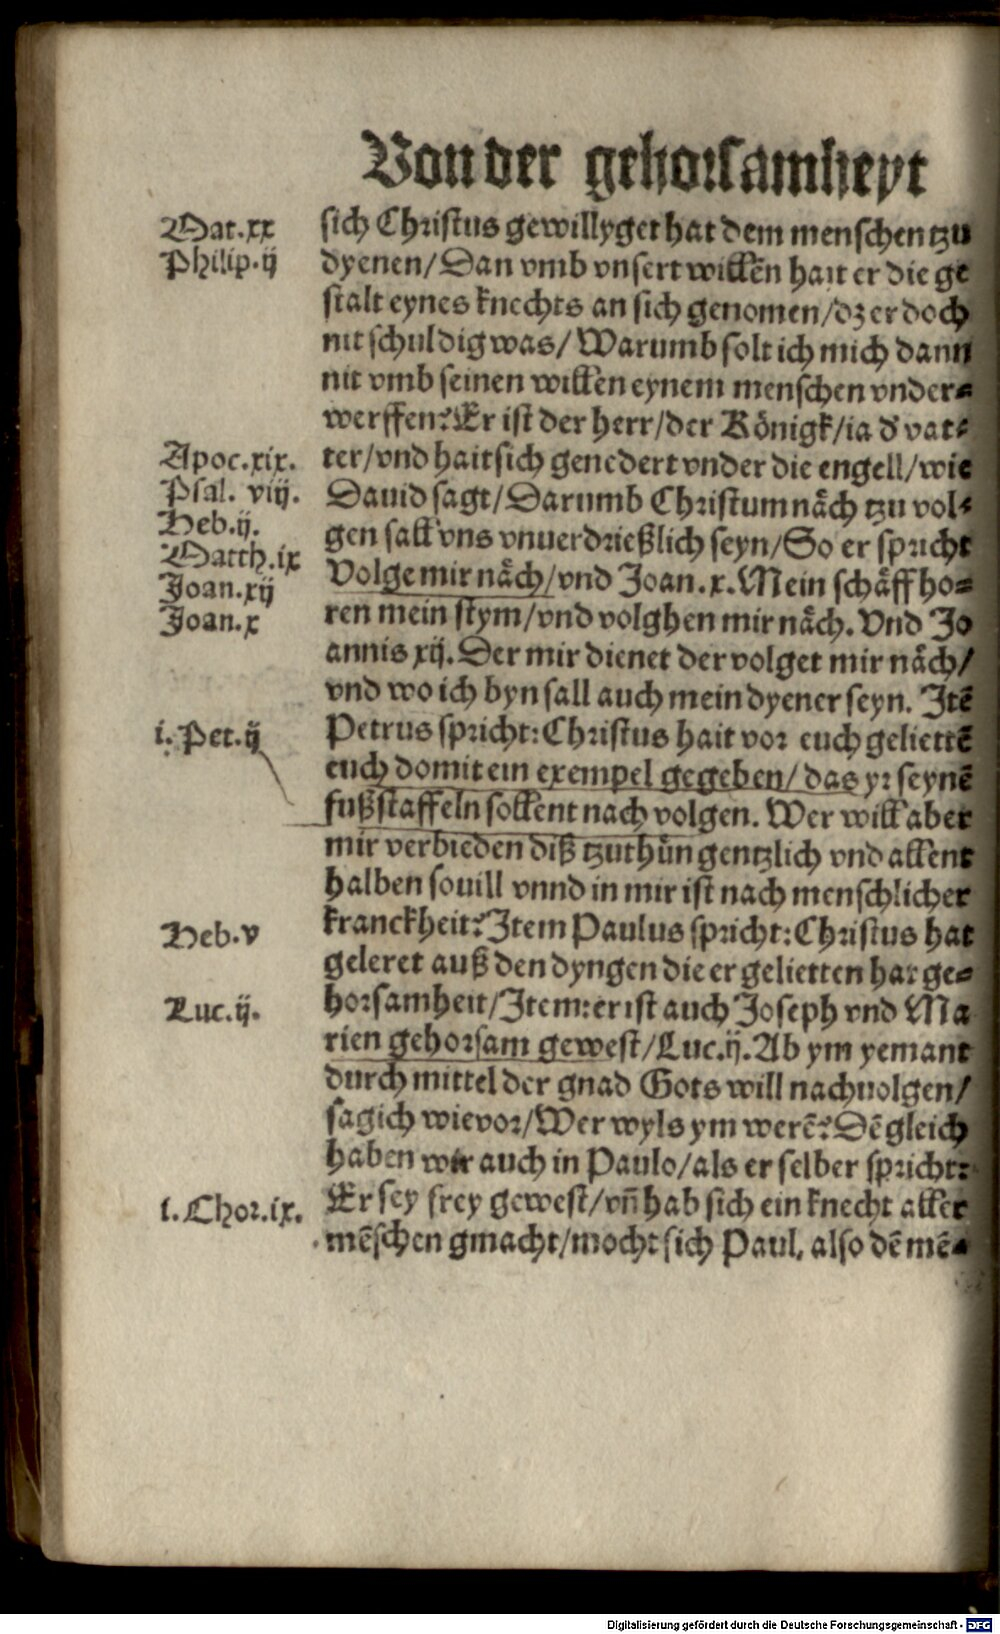 Von der gehorsamheyt
Mat.xx
Philip.ij
sich Christus gewillyget hat dem menschen tzu
dyenen/Dan vmb vnsert willen hait er die ge
stalt eynes knechts an sich genomen/dz er doch
nit schuldig was/ Warumb solt ich mich dann
nit vmb seinen willen eynem menschen vnder⸗
werffen? Er ist der herr/der Königk/ia d̕ vat⸗
Apoc.xix.
Psal. viij.
Heb.ij.
Matth.ix
Joan.xij
Joan.x
ter/vnd hait sich genedert vnder die engell/wie
Dauid sagt/Darumb Christum nåch tzu vol⸗
gen sall vns vnuerdrießlich seyn/So er spricht
Volge mir nåch/vnd Joan.x. Mein schåff ho⸗
ren mein stym/vnd volghen mir nåch. Vnd Jo
annis xij. Der mir dienet der volget mir nåch/
vnd wo ich byn sall auch mein dyener seyn. Itē
i. Pet.ij
Petrus spricht: Christus hait vor euch geliettē
euch domit ein exempel gegeben/ das yr seynē
fußstaffeln sollent nach volgen. Wer will aber
mir verbieden diß tzuthůn gentzlich vnd allent
halben souill vnnd in mir ist nach menschlicher
Heb.v
kranckheit? Item Paulus spricht: Christus hat
geleret auß den dyngen die er gelietten hat ge⸗
Luc.ij.
horsamheit/Item: er ist auch Joseph vnd Ma
rien gehorsam gewest/Luc.ij. Ab ym yemant
durch mittel der gnad Gots will nachuolgen/
sag ich wie vor/Wer wyls ym werē? Dē gleich
haben wir auch in Paulo/als er selber spricht:
i. Chor.ix.
Er sey frey gewest/vn̄ hab sich ein knecht aller
mēschen gmacht/mocht sich Paul. also dē mē⸗
Digitalisierung gefördert durch die Deutsche Forschungsgemeinschaft - DFG